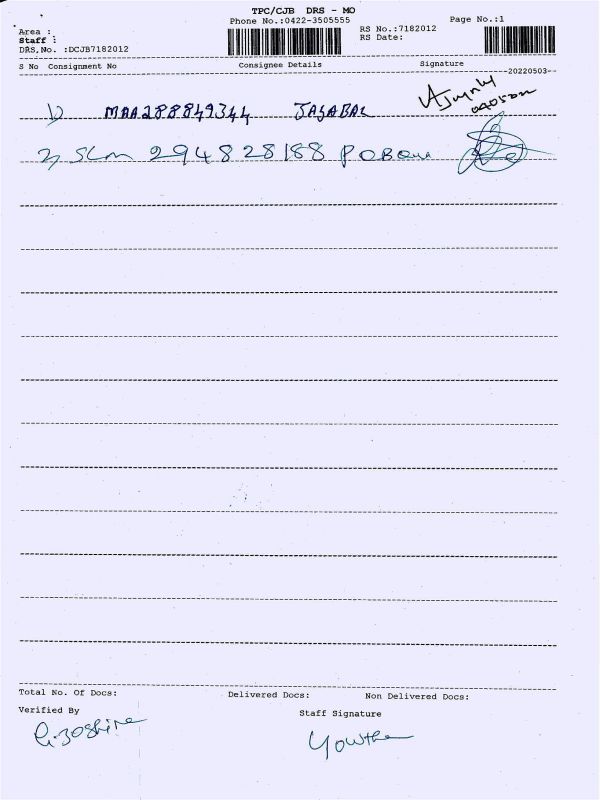 TPC/CJB DRS - MO
Phone No.:0422-3505555
Page No.:1
Area :
Staff :
DRS,No. :DCJB7182012
RS No.:7182012
RS Date:
S No Consignment No Consignee Details Signature
20220503
1) MAA288849344 JAJABAL
2) SLM 294828188 POBOM
Total No. Of Docs: Delivered Docs: Non Delivered Docs:
Verified By Staff Signature